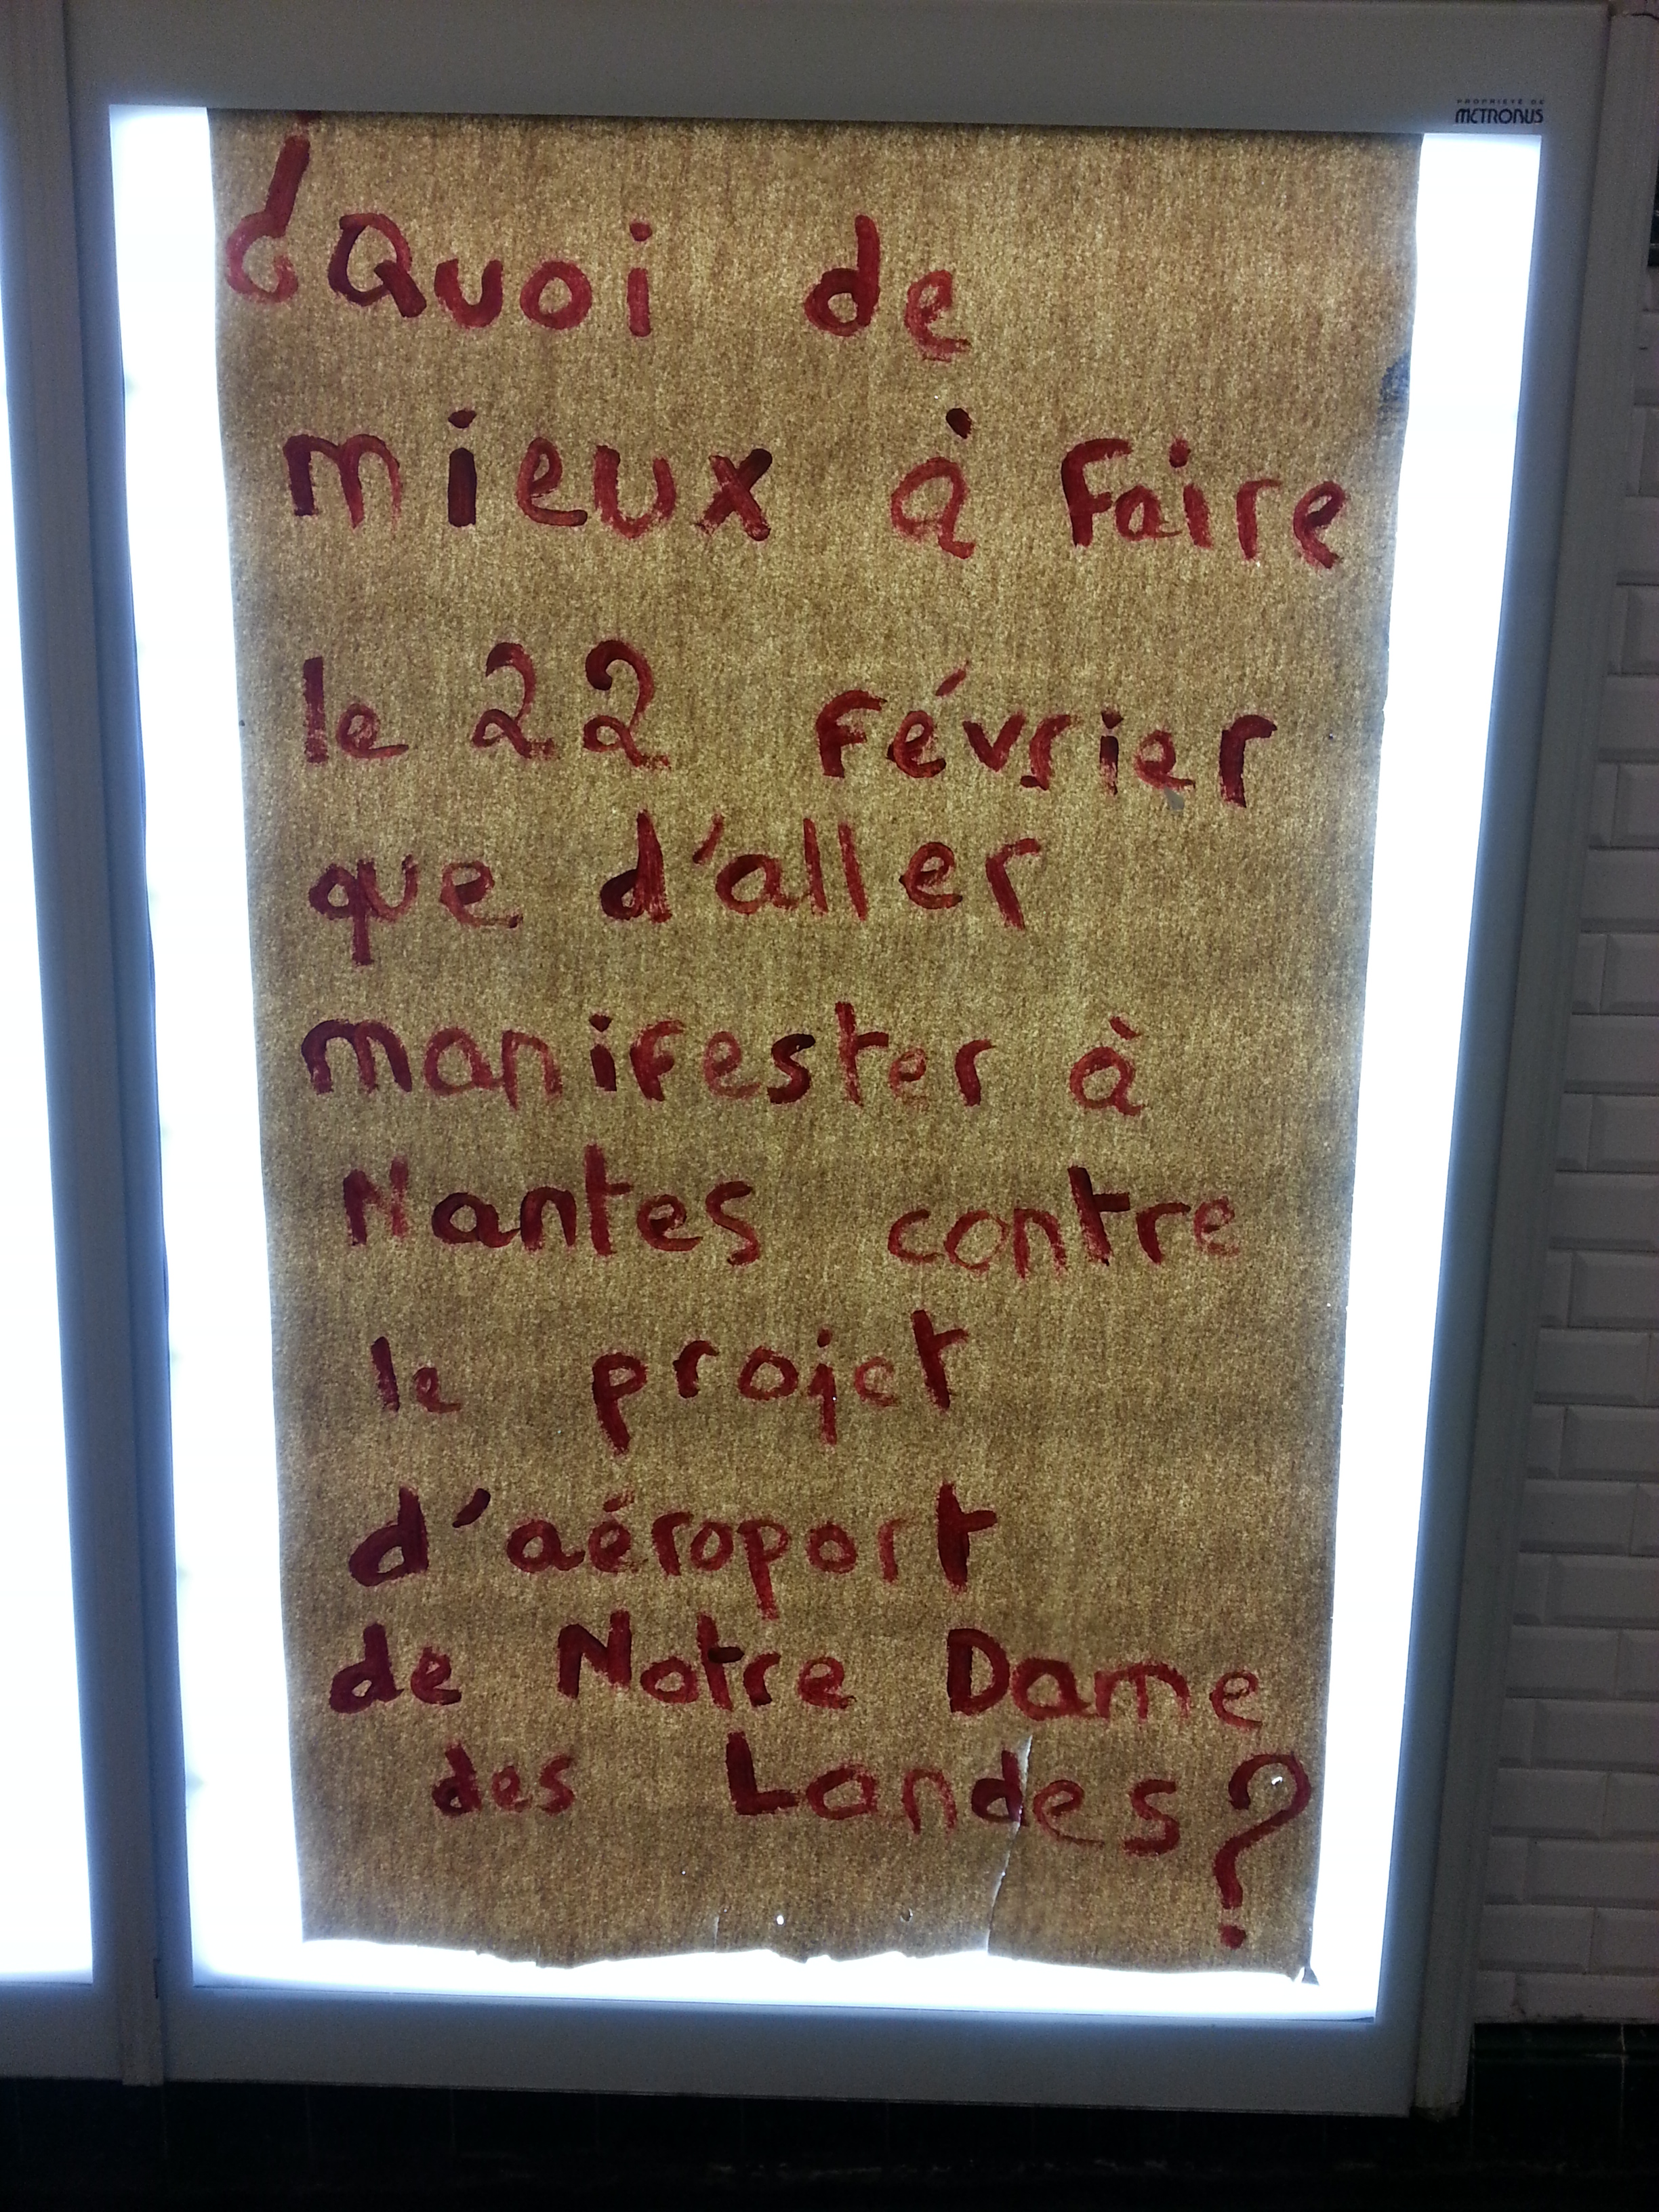 PROPRIÉTÉ DE
METROBUS
¿Quoi de
mieux à Faire
le 22 Février
que d'aller
manifester à
Nantes contre
le projet
d'aéroport
de Notre Dame
des Landes?